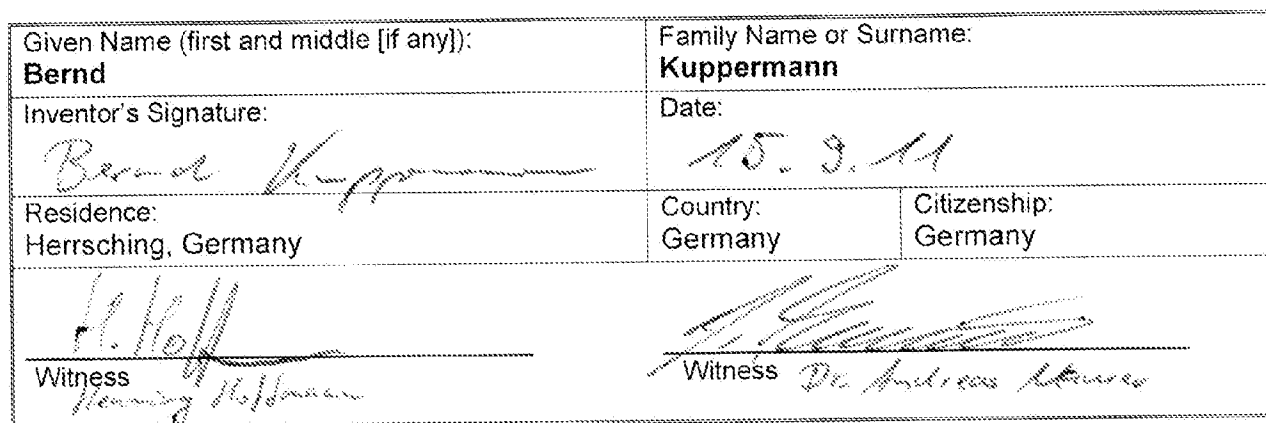 Given Name (first and middle [if any]):
Bernd
Family Name or Surname:
Kuppermann
Inventor's Signature:
Bernd Kuppermann
Date:
15. 9. 11
Residence:
Herrsching, Germany
Country:
Germany
Citizenship:
Germany
H. Hoff
Witness
Henning Hoffmann
Witness Dr. Andreas